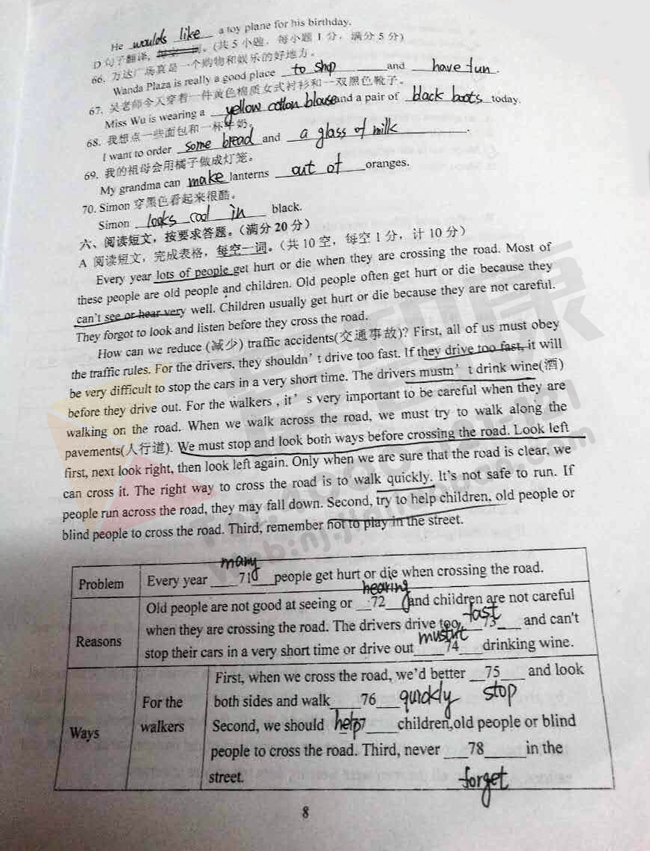 He woulds like a toy plane for his birthday.
D 句子翻译, (共 5 小题, 每小题 1 分, 满分 5 分)
66. 万达广场真是一个购物和娱乐的好地方。
Wanda Plaza is really a good place to shop and have fun.
67. 吴老师今天穿着一件黄色棉质女式衬衫和一双黑色靴子。
Miss Wu is wearing a yellow cotton blouse and a pair of black boots today.
68. 我想点一些面包和一杯牛奶。
I want to order some bread and a glass of milk.
69. 我的祖母会用橘子做成灯笼。
My grandma can make lanterns out of oranges.
70. Simon 穿黑色看起来很酷。
Simon looks cool in black.
六、阅读短文，按要求答题。(满分 20 分)
A 阅读短文，完成表格，每空一词。(共 10 空，每空 1 分，计 10 分)
Every year lots of people get hurt or die when they are crossing the road. Most of
these people are old people and children. Old people often get hurt or die because they
can't see or hear very well. Children usually get hurt or die because they are not careful.
They forgot to look and listen before they cross the road.
How can we reduce (减少) traffic accidents(交通事故)? First, all of us must obey
the traffic rules. For the drivers, they shouldn't drive too fast. If they drive too fast, it will
be very difficult to stop the cars in a very short time. The drivers mustn't drink wine(酒)
before they drive out. For the walkers, it's very important to be careful when they are
walking on the road. When we walk across the road, we must try to walk along the
pavements(人行道). We must stop and look both ways before crossing the road. Look left
first, next look right, then look left again. Only when we are sure that the road is clear, we
can cross it. The right way to cross the road is to walk quickly. It's not safe to run. If
people run across the road, they may fall down. Second, try to help children, old people or
blind people to cross the road. Third, remember not to play in the street.
many
Problem Every year 71 people get hurt or die when crossing the road.
hearing
Old people are not good at seeing or 72 and children are not careful
when they are crossing the road. The drivers drive too 73 fast and can't
Reasons
mustn't
stop their cars in a very short time or drive out 74 drinking wine.
First, when we cross the road, we'd better 75 and look
For the both sides and walk 76 quickly stop
walkers Second, we should help 77 children, old people or blind
Ways
people to cross the road. Third, never 78 in the
street.
forget
8